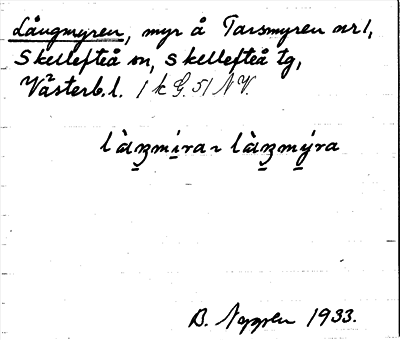 Långmyren, myr å Tarsmyren nr 1,
Skellefteå sn, Skellefteå tg,
Västerb. l. / k G. 51 NV.
làŋmira ~ làŋmýra
B. 1933.